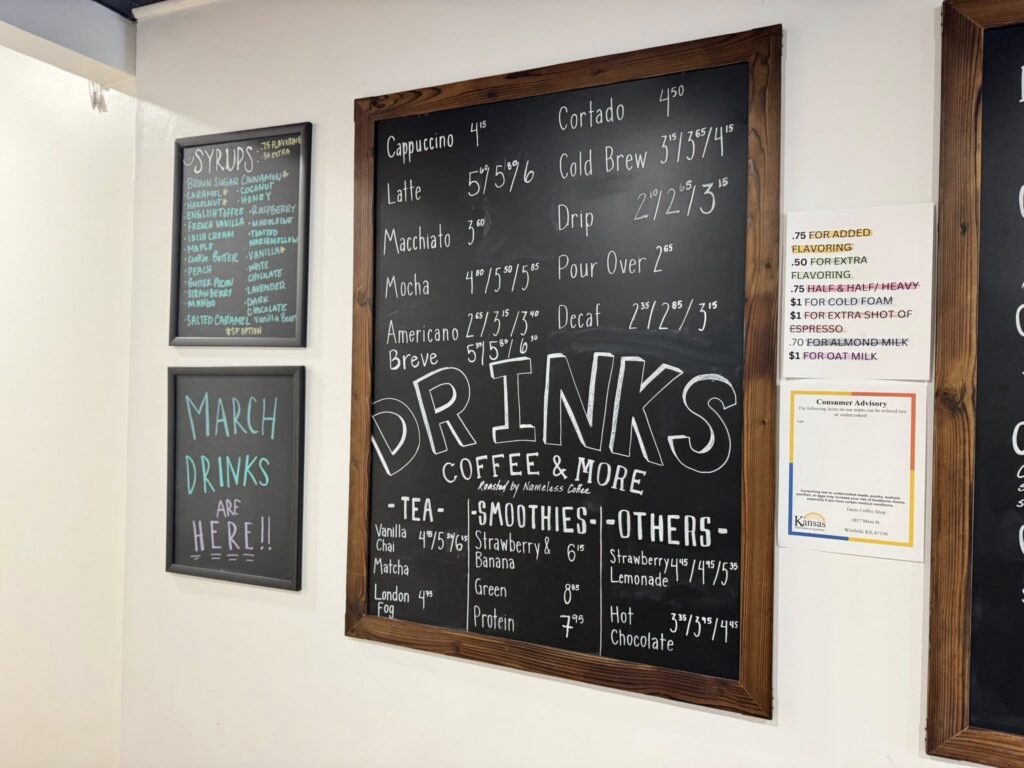 SYRUPS:
.75 FLAVORING
.50 EXTRA
BROWN SUGAR CINNAMON*
CARAMEL*
HAZELNUT*
ENGLISH TOFFEE
FRENCH VANILLA
IRISH CREAM
MAPLE
COOKIE BUTTER
PEACH
BUTTER PECAN
STRAWBERRY
MANGO
SALTED CARAMEL
COCONUT
HONEY
RASPBERRY
MADELEINE
TOASTED
MARSHMELLOW
VANILLA*
WHITE
CHOCLATE
LAVENDER
DARK
CHOCOLATE
Vanilla Bean
*SF OPTION
MARCH
DRINKS
ARE
HERE!!
Cappuccino 4.15
Latte
Macchiato 3.60
Mocha 4.80/5.50/5.85
Americano 2.65/3.15/3.40
Breve
Cortado 4.50
Cold Brew 3.15/3.65/4.15
Drip
Pour Over 2.65
Decaf 2.35/2.85/3.15
DRINKS
COFFEE & MORE
Roasted by Nameless Coffee
-TEA-
Vanilla
Chai
Matcha
London
Fog 4.95
-SMOOTHIES-
Strawberry &
Banana 6.15
Green 8.85
Protein 7.95
-OTHERS-
Strawberry
Lemonade 4.45/4.95/5.35
Hot
Chocolate 3.35/3.95/4.45
.75 FOR ADDED
FLAVORING
.50 FOR EXTRA
FLAVORING
.75 HALF & HALF/ HEAVY
$1 FOR COLD FOAM
$1 FOR EXTRA SHOT OF
ESPRESSO
.70 FOR ALMOND MILK
$1 FOR OAT MILK
Consumer Advisory
The following items on our menu can be ordered raw
or undercooked:
Consuming raw or undercooked meats, poultry, seafood,
shellfish, or eggs may increase your risk of foodborne illness,
especially if you have certain medical conditions.
Oasis Coffee Shop
1017 Main St.
Winfield, KS, 67156
Kansas